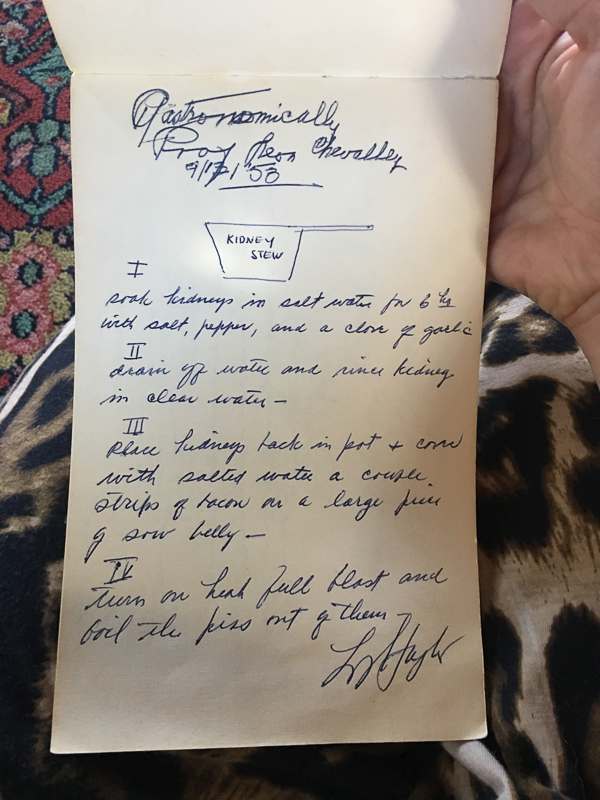 Gastronomically
Prof Leon Chevalley
9/17/53
KIDNEY
STEW
I
soak kidneys in salt water for 6 hrs
with salt, pepper, and a clove of garlic
II
drain off water and rince kidney
in clear water -
III
Place kidneys back in pot + cover
with salted water a couple
strips of bacon or a large piece
of sow belly -
IV
turn on heat full blast and
boil the piss out of them -